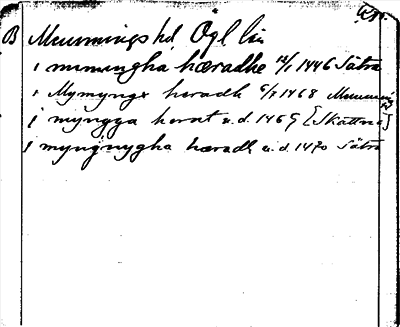 B Memmings hd, Ögl län
i mimingha hæradhe 12/1 1446 Sätra
i Mymyngx heradh 6/1 1468
i myngya herat u.d. 1469 [Skattna]
i myngnygha hæradh u.d. 1470 Sätra